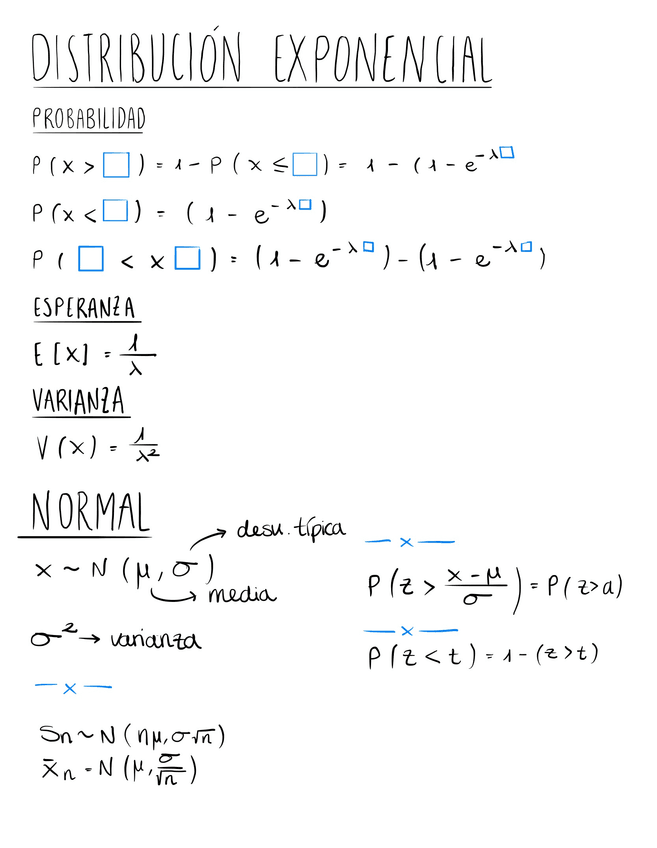 DISTRIBUCIÓN EXPONENCIAL
PROBABILIDAD
P(x > □) = 1 - P(x ≤ □) = 1 - (1 - e^-λ□
P(x < □) = (1 - e^-λ□)
P(□ < x □) = (1 - e^-λ□) - (1 - e^-λ□)
ESPERANZA
E[x] = 1/λ
VARIANZA
V(x) = 1/λ²
NORMAL
desv. típica
x ~ N(μ, σ)
media
σ² → varianza
— x —
Sn ~ N(nμ, σ√n)
x̄n - N(μ, σ/√n)
— x —
P(z > (x-μ)/σ) = P(z>a)
— x —
P(z < t) = 1 - (z>t)